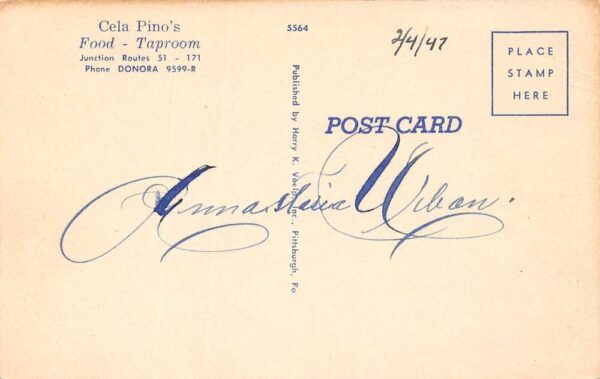 Cela Pino's
Food - Taproom
Junction Routes 51 - 171
Phone DONORA 9599-R
5564
2/4/47
PLACE
STAMP
HERE
POST CARD
Published by Harry K. Inc., Pittsburgh, Pa.
Annastasia Urban.